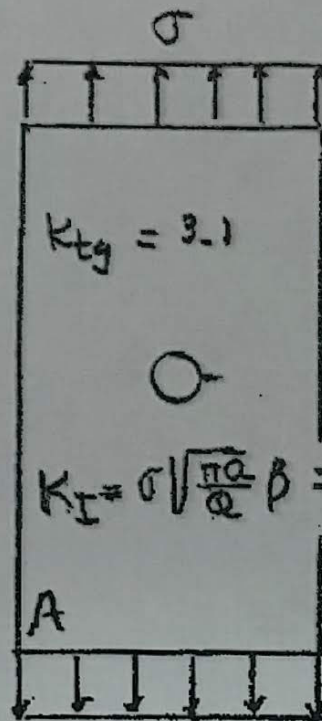 σ
Ktg = 3.1
K_I = σ√(πa/Q) β =
A